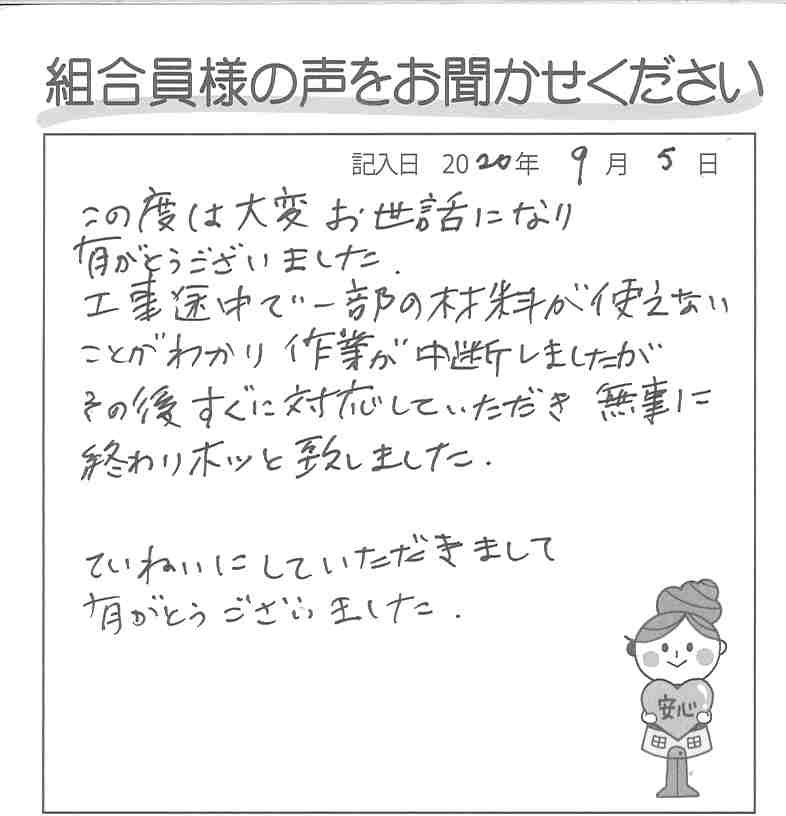 組合員様の声をお聞かせください
記入日 2020年 9月 5日
この度は大変お世話になり
有がとうございました.
工事途中で一部の材料が使えない
ことがわかり作業が中断しましたが
その後すぐに対応していただき 無事に
終わりホッと致しました.
ていねいにしていただきまして
有がとうございました.
安心